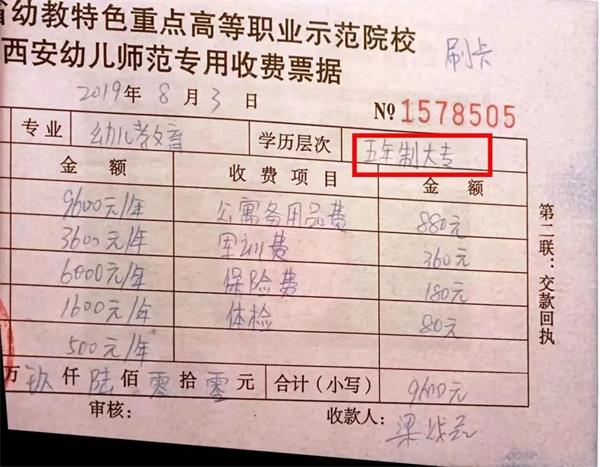 省幼教特色重点高等职业示范院校
西安幼儿师范专用收费票据
刷卡
2019年8月3日
№1578505
专业 幼儿教育 学历层次 五年制大专
金额 收费项目 金额
9600元/年 公寓备用品费 880元
3600元/年 军训费 360元
6000元/年 保险费 180元
1600元/年 体检 80元
500元/年
万玖仟陆佰零拾零元 合计(小写) 9600元
审核: 收款人:
第二联:交款回执